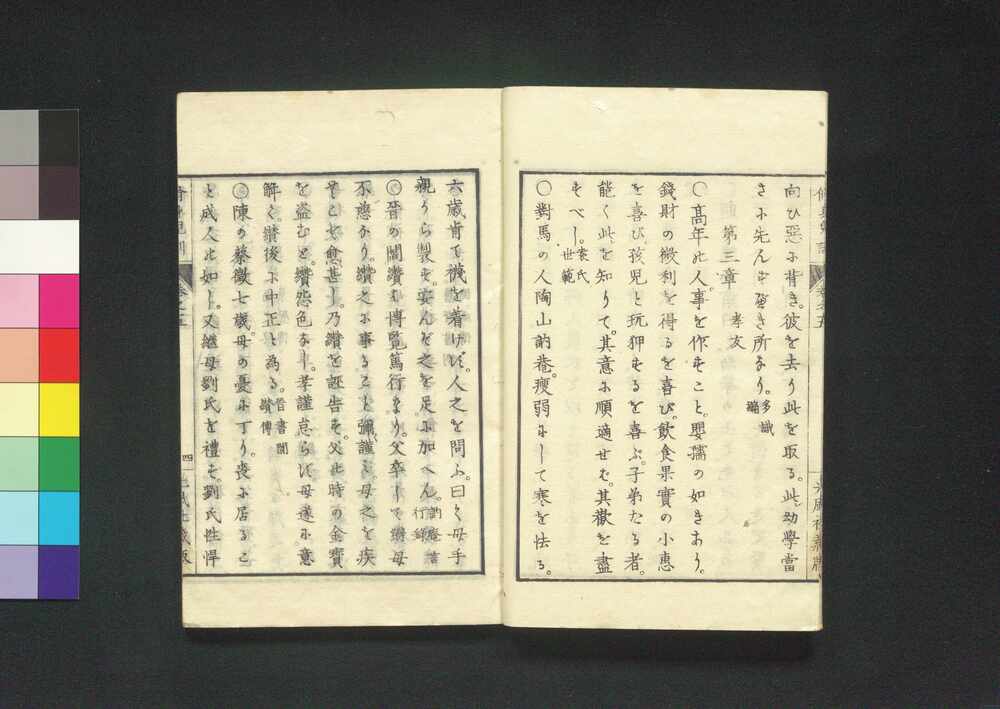 向ひ惡に背き。彼を去り此を取る。此幼學當
さに先んずべき所なり。多識編
第三章 孝友
○高年の人事を作すこと。嬰孺の如きあり。
錢財の微利を得るを喜び。飲食果實の小惠
を喜び。孩兒と玩狎するを喜ぶ。子弟たる者。
能く此を知りて。其意に順適せば。其歡を盡
すべし。袁氏世範
○對馬の人陶山訥菴。瘦弱にして寒を怯る。
六歳肯て襪を着けず。人之を問ふ。曰く母手
親から製す。安んぞ之を足に加へん。訥菴言行錄
○晉の閻纘は博覽篤行なり。父卒して繼母
不慈なり。纘之に事ること彌謹む。母之を疾
むこと愈甚し。乃纘を誣告す。父の時の金寳
を盜むと。纘怨色なし。孝謹怠らず。母遂に意
解く。纘後に中正と為る。晉書閻纘傳
○陳の蔡徴七歳。母の憂に丁り。喪に居るこ
と成人の如し。又繼母劉氏を禮す。劉氏性悍
四